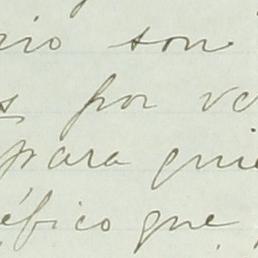 rio son
s por ve
para quie
éfico que